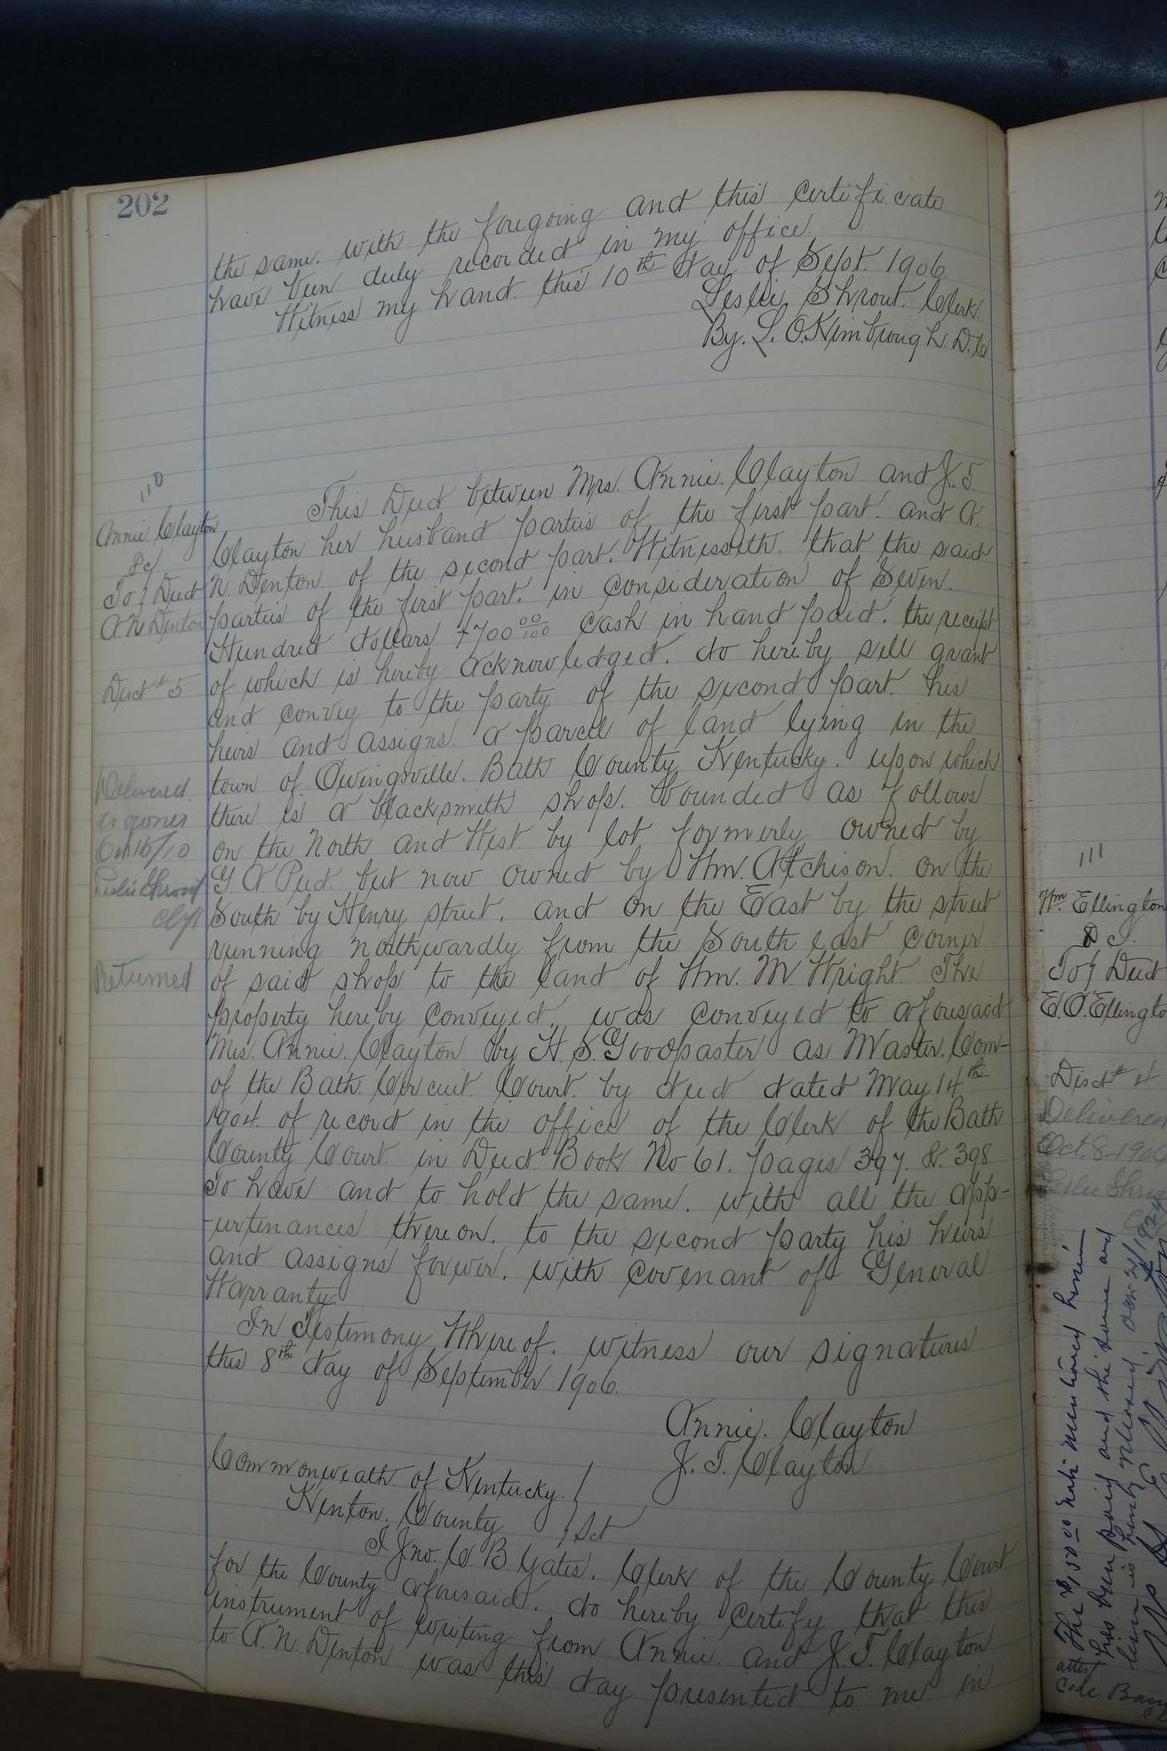 202
the same. with the foregoing and this certificate
have been duly recorded in my office.
Witness my hand. this 10th day of Sept. 1906
Leslie Shrout. Clerk.
By. L. O. Kimbrough. D.C
110
Annie Clayton
&c
To / Deed
A. N. Denton
Disct # 5
Delivered
to owner
Oct 15/10
Leslie Shrout
clk
Returned
This Deed between Mrs. Annie. Clayton and J. T.
Clayton her husband parties of the first part. and A.
N. Denton. of the second part. Witnesseth. that the said
parties of the first part. in consideration of Seven.
Hundred dollars $700 00/100 cash in hand paid. the receipt
of which is hereby acknowledged. do hereby sell grant
and convey to the party of the second part. his
heirs and assigns. a parcel of land lying in the
town of Owingsville. Bath County Kentucky. upon which
there is a blacksmith shop. bounded as follows
on the North and West by lot formerly owned by
G. A Peed. but now owned by Wm. Atchison. on the
South by Henry street. and on the East by the street
running northwardly from the South east corner
of said shop to the land of Wm. M. Wright. The
property hereby conveyed. was conveyed to aforesaid
Mrs. Annie. Clayton by H. S. Goodpaster as Master. Com-
of the Bath. Circuit. Court. by deed dated May 14th
1904. of record in the office of the Clerk of the Bath
County Court. in Deed Book No 61. pages 397. &. 398
To have and to hold the same. with all the app-
-urtenances thereon. to the second party his heirs
and assigns forever. with covenant of General
Warranty.
In Testimony Whereof. witness our signatures
this 8th day of September 1906.
Annie. Clayton
J. T. Clayton
Commonwealth. of Kentucky. }
Kenton. County } Sct
I Jno. C. B Yates. Clerk of the County Court
for the County aforesaid. do hereby certify that this
instrument of writing from Annie. and J. T. Clayton
to A. N. Denton was this day presented to me in
111
Wm. Ellington
&c.
To / Deed
E. O. Ellingto
Disct # 4
Delivered
Oct. 8-1906
Leslie Shr
The $ 50 00 note mentioned herein
has been paid and the same and
lien is hereby released.
attest